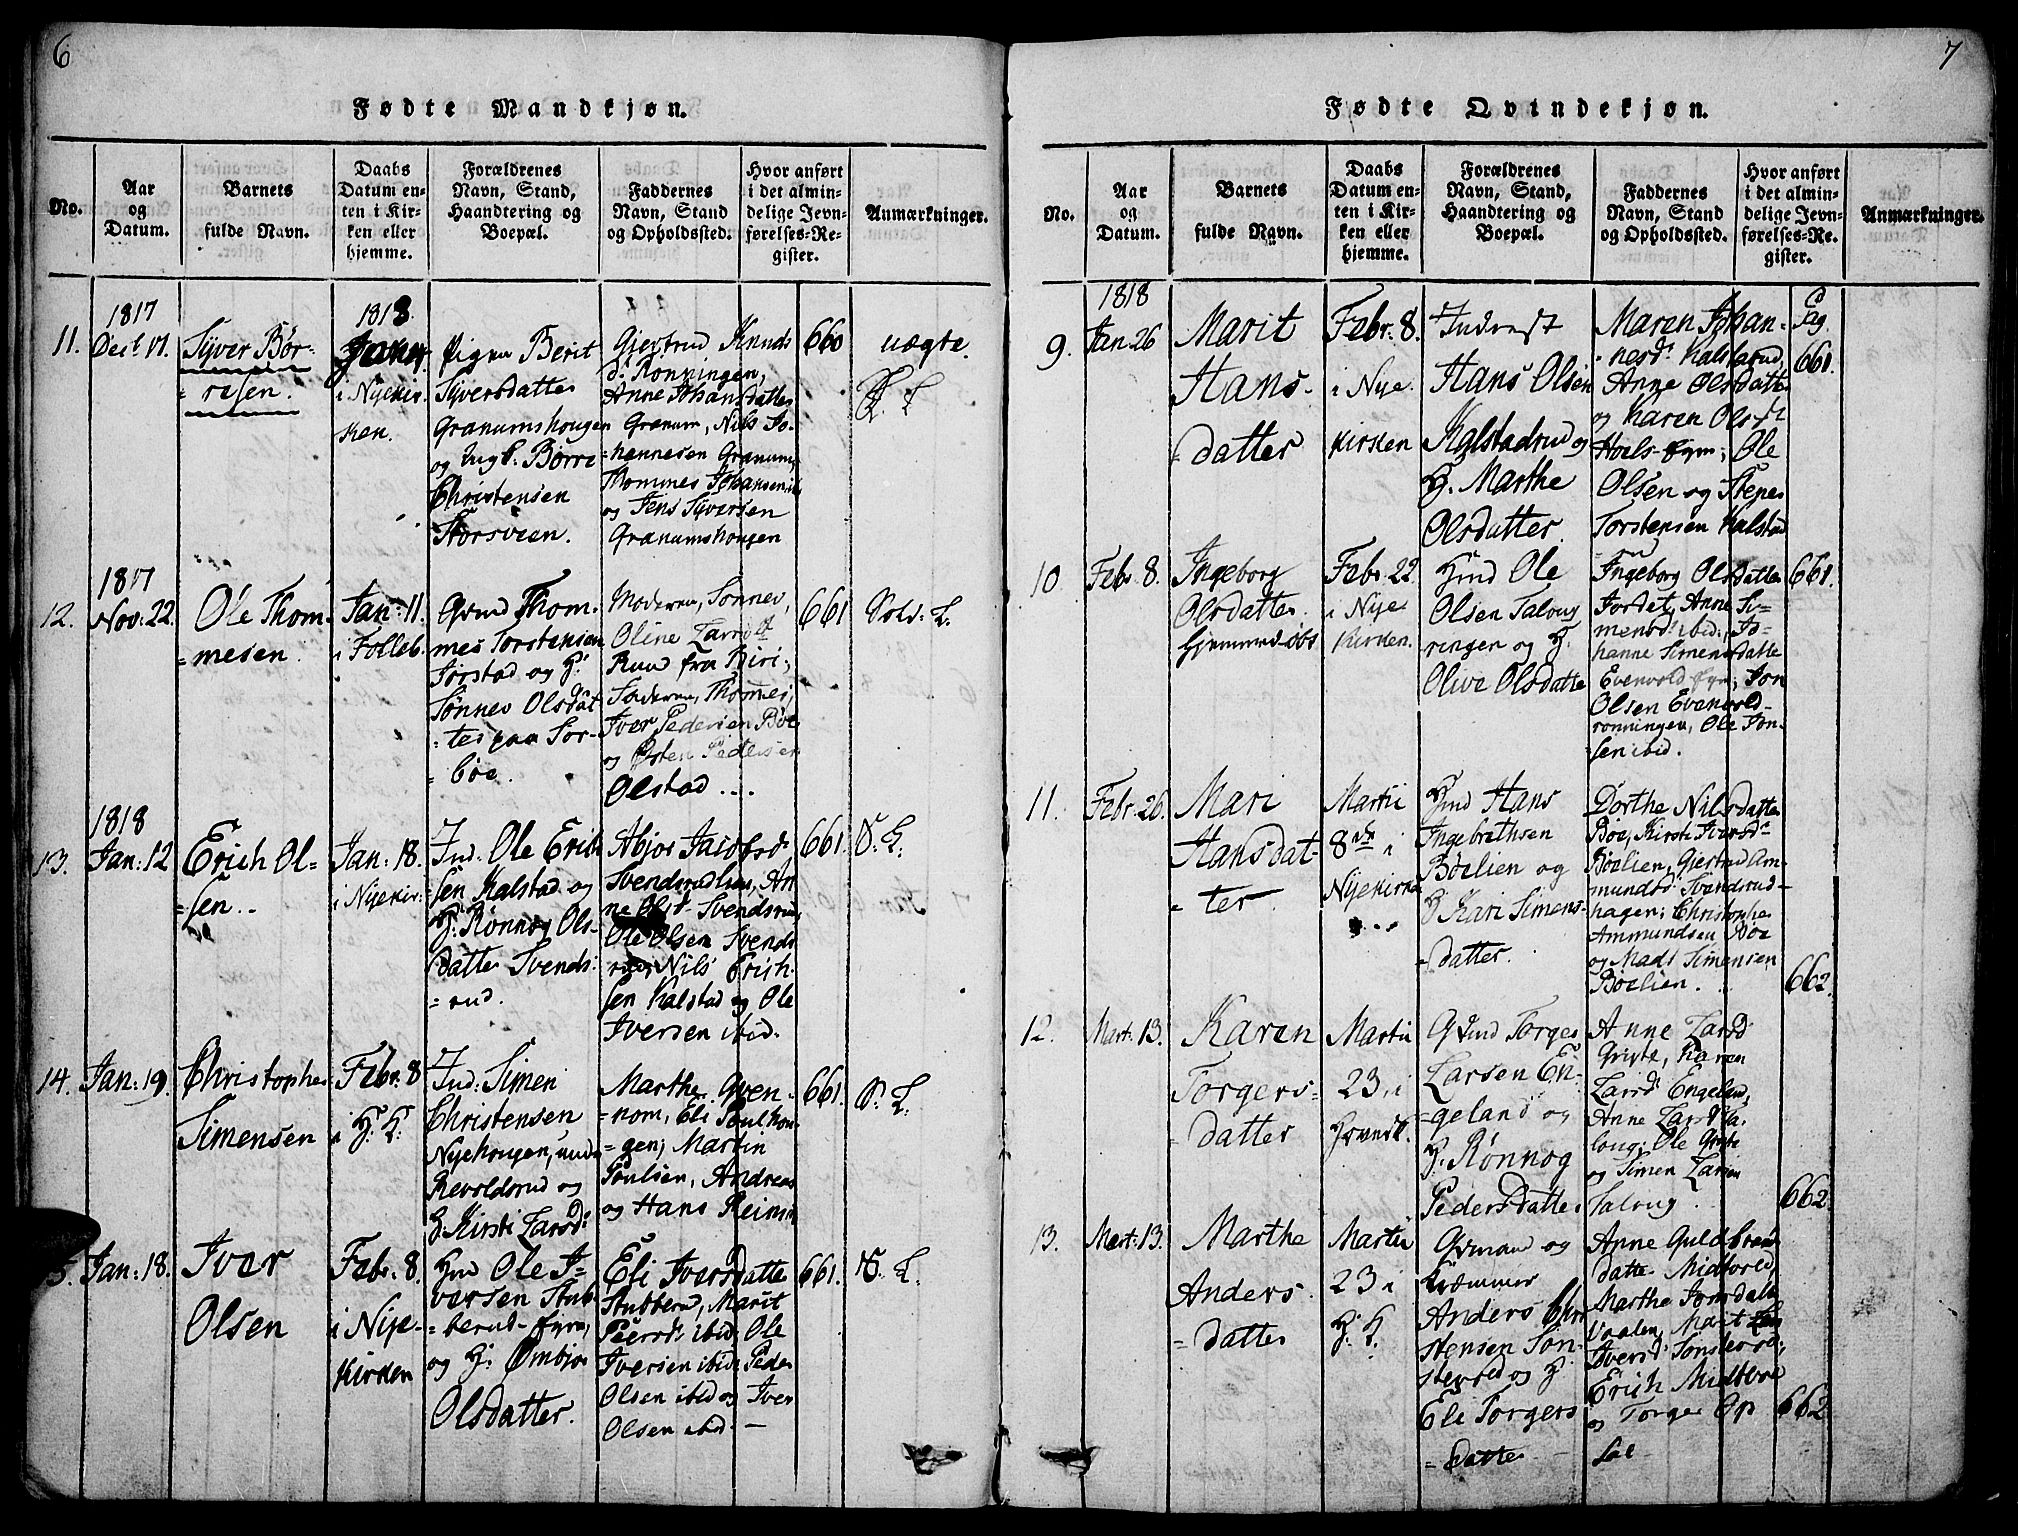 6
Fødte Mandkjøn.
No.
Aar
og
Datum.
Barnets
fulde Navn.
Daabs
Datum en-
ten i Kir-
ken eller
hjemme.
Forældrenes
Navn, Stand,
Haandtering og
Boepæl.
Faddernes
Navn, Stand
og Opholdssted.
Hvor anført
i det almin-
delige Jevn-
førelses-Re-
gister.
Anmærkninger.
11.
1817
Dec. 17.
Syver Bør-
resen.
1818
Jan.
i Nyekir-
ken.
Pigen Berit
Syversdatter
Granumshougen
og Ungk. Børre
Christensen
Storsveen.
Giertrud Knuds
d. Rønningen,
Anne Johansdatter
Granum, Nils Jo-
hannesen Granum,
Thommes Johansen ib.
og Jens Syversen
Granumshougen
660
uægte.
12.
1817
Nov: 22.
Ole Thom-
mesen.
Jan: 11.
i Folleb.
Gmd Thom-
mes Torstensen
Jørstad og H:
Sønnev Olsdat-
ter paa For-
Moderen, Sønnev,
Oline Larsdt
Ruud fra Biri;
Faderen, Thomes,
Iver Pedersen Bøe
og Østen Pedersen
Olstad ....
661
Sold. L.
13.
1818
Jan: 12
Erich Ol-
sen..
Jan: 18.
i Nyekir.
Ind. Ole Erik-
sen Kalstad og
H. Rønnog Ols-
datter Svends-
rud.
Abjør Jacobsd.
Svendsrudhau, An-
ne Olsd. Svendsrud,
Ole Olsen Svends-
rud, Nils Erich-
sen Kalstad og Ole
Iversen ibid.
661.
S. L.
14.
Jan: 19.
Christopher
Simensen
Febr. 8
i H. K.
Ind: Simen
Christensen
Nyehougen, under
Revoldsrud og
H. Kirsti Larsd:
Marthe Qven-
nom, Eli Poulhou-
gen; Martin
Poulsen, Andreas
og Hans
661.
S. L.
Jan: 18.
Iver
Olsen
Febr. 8.
i Nye-
kirken
Hmd Ole I-
versen Stub-
berud-eyen,
og H: Ømbjør
Olsdatter.
Eli Iversdatter
Stubberud, Marit
Peersd. ibid, Ole
Iversen ibid, Peder
Olsen ibid og Iver
Olsen ibid. —
661.
S. L.
7
Fødte Qvindekjøn.
No.
Aar
og
Datum.
Barnets
fulde Navn.
Daabs
Datum en-
ten i Kir-
ken eller
hjemme.
Forældrenes
Navn, Stand,
Haandtering og
Boepæl.
Faddernes
Navn, Stand
og Opholdssted.
Hvor anført
i det almin-
delige Jevn-
førelses-Re-
gister.
Anmærkninger.
9.
1818
Jan. 26
Marit
Hans-
datter
Febr. 8.
i Nye-
kirken
Inderst
Hans Olsen
Kalstadrud og
H. Marthe
Olsdatter.
Maren Johan-
nesd. Kalstarud,
Anne Olsdatter
og Karen Olsdt
Hoels-eyen; Ole
Olsen og Steper
Torstensen Kalstad
Pag.
661.
10
Febr. 8.
Ingeborg
Olsdatter.
Febr. 22.
i Nye-
kirken.
Hmd Ole
Olsen Saloug
ringen og H.
Olive Olsdatter
Ingeborg Olsdatter
Jordet, Anne Si-
mensd: ibid., Jo-
hanne Simensdatter
Evenvold eyn; Jon
Olsen Evenvold-
rønningen, Ole Jon-
sen ibid.
661.
11.
Febr. 26.
Mari
Hansdat-
ter.
Martii
8de i
Nyekirk.
Hmd Hans
Ingebrethsen
Bøelien og
H Kari Simens-
datter.
Dorthe Nilsdatter
Bøe, Kirsti Iversd.
Bøelien, Giertrud Am-
mundsd. Svendsrud-
hagen; Christopher
Ammundsen Bøe
og Mads Simensen
Bøelien.
662.
12.
Mart. 13.
Karen
Torgers-
datter
Martii
23, i
Hovedk.
Gmd Torger
Larsen En-
geland og
H. Rønnog
Pedersdatter
Anne Larsd
Grythe, Karen
Larsd. Engeland,
Anne Larsd Sa-
loug; Ole Grythe
og Simen Larsen
Saloug.
662
13.
Mart. 13.
Marthe
Anders-
datter
Martii
23 i
H. K.
Gdmand og
Kræmmer
Anders Chri-
stensen Søn-
steved og H.
Eli Torgers-
datter —
Anne Guldbrand
datter Midtvold,
Marthe Jonsdatter
Vaalen, Marit
Iversd. Sønsteved;
Erich Midtvold
og Torger Op
sal
662